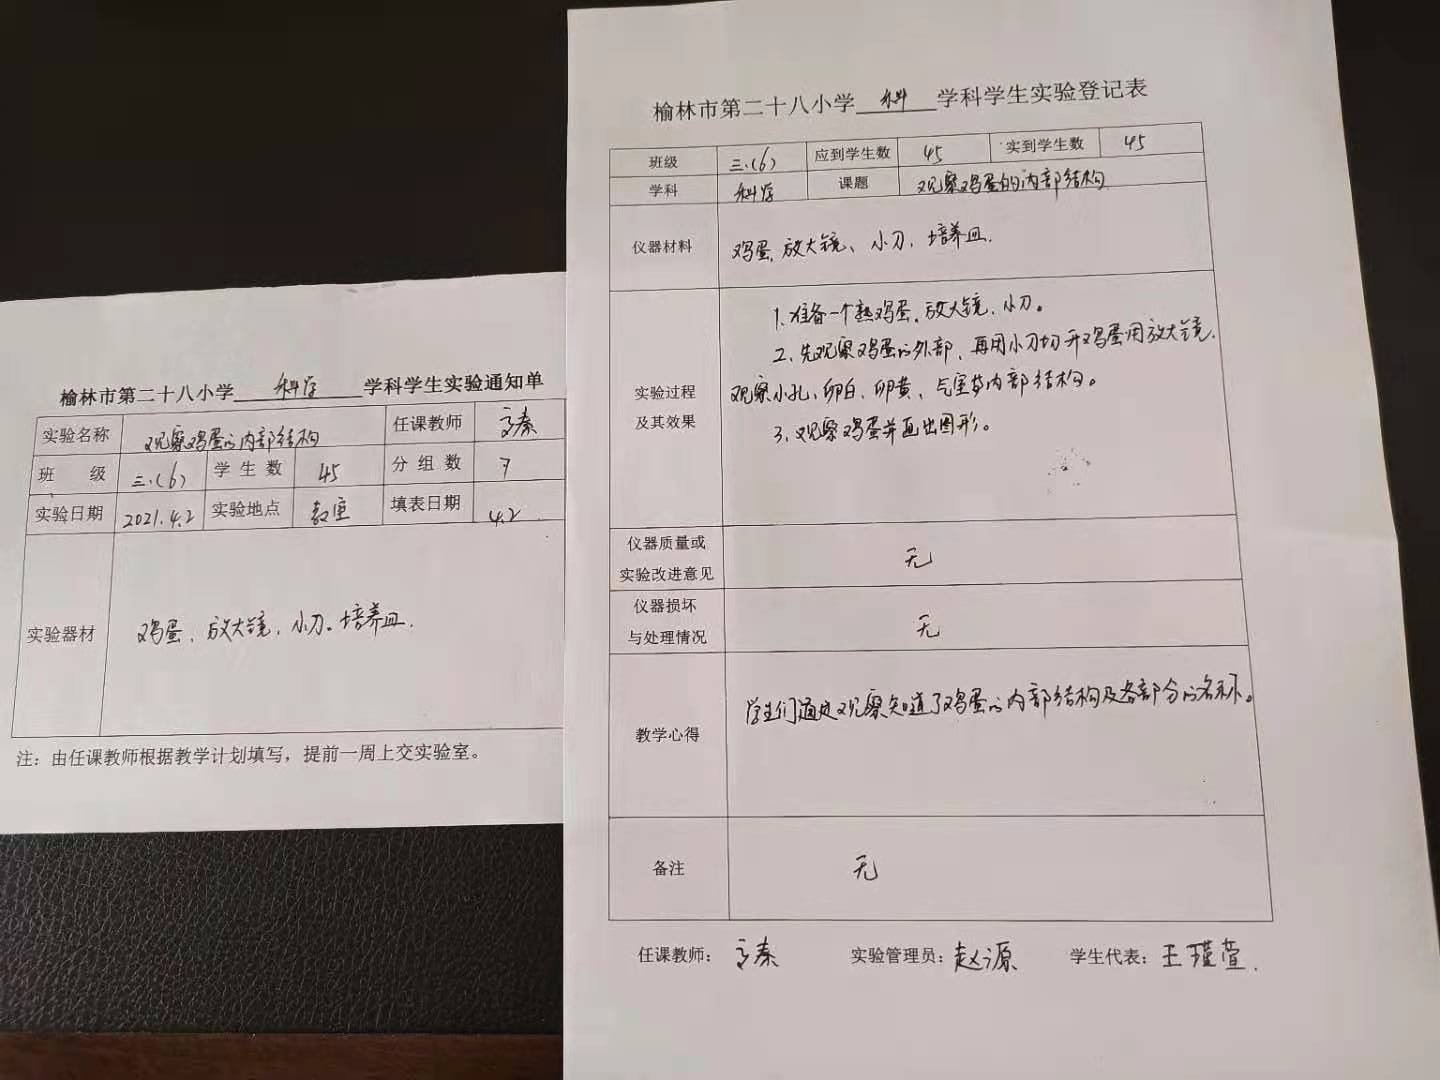 榆林市第二十八小学 科学 学科学生实验通知单
实验名称 观察鸡蛋的内部结构 任课教师
班级 三.(6) 学生数 45 分组数 7
实验日期 2021.4.2 实验地点 教室 填表日期 4.2
实验器材 鸡蛋、放大镜、小刀、培养皿.
注：由任课教师根据教学计划填写，提前一周上交实验室。
榆林市第二十八小学 科 学科学生实验登记表
班级 三.(6) 应到学生数 45 实到学生数 45
学科 科学 课题 观察鸡蛋的内部结构
仪器材料 鸡蛋、放大镜、小刀、培养皿.
实验过程
及其效果
1.准备一个熟鸡蛋、放大镜、小刀。
2、先观察鸡蛋的外部、再用小刀切开鸡蛋用放大镜.
观察小孔、卵白、卵黄、气室等内部结构。
3、观察鸡蛋并画出图形。
仪器质量或
实验改进意见 无
仪器损坏
与处理情况 无
教学心得 学生们通过观察知道了鸡蛋的内部结构及各部分的名称。
备注 无
任课教师： 实验管理员：赵源 学生代表：王瑾萱.